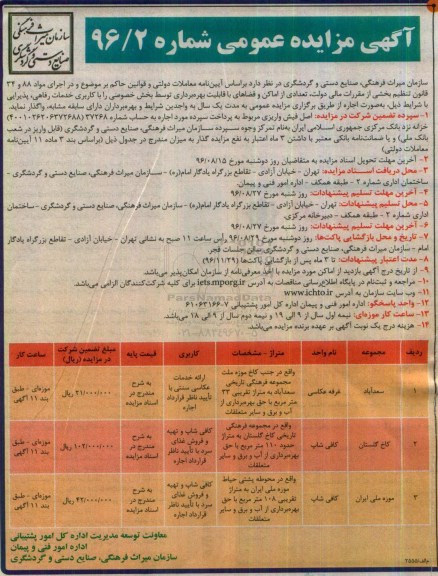 سازمان میراث فرهنگی
صنایع دستی و گردشگری
آگهی مزایده عمومی شماره ۹۶/۲
سازمان میراث فرهنگی، صنایع دستی و گردشگری در نظر دارد براساس آیین‌نامه معاملات دولتی و قوانین حاکم بر موضوع و در اجرای مواد ۸۸ و ۲۴
قانون تنظیم بخشی از مقررات مالی دولت، تعدادی از اماکن و فضاهای با قابلیت بهره‌برداری توسط بخش خصوصی را با کاربری خدمات رفاهی، پذیرایی
با شرایط ذیل، به‌صورت اجاره از طریق برگزاری مزایده عمومی به مدت یک سال به واجدین شرایط و بهره‌برداران دارای سابقه مشابه، واگذار نماید.
۱- سپرده تضمین شرکت در مزایده: اصل فیش واریزی مربوط به پرداخت سپرده مورد اجاره به حساب شماره
خزانه نزد بانک مرکزی جمهوری اسلامی ایران به‌نام تمرکز وجوه سپرده سازمان میراث فرهنگی، صنایع دستی و گردشگری (قابل واریز در شعب
بانک ملی) و یا ضمانت‌نامه بانکی معتبر با داشتن ۳ ماه اعتبار به نفع مزایده گذار به میزان مندرج در جدول ذیل (براساس بند ۳ ماده ۱۱ آیین‌نامه
معاملات دولتی)
۲- آخرین مهلت تحویل اسناد مزایده به متقاضیان روز دوشنبه مورخ ۹۶/۰۸/۱۵
۳- محل دریافت اسناد مزایده: تهران - خیابان آزادی - تقاطع بزرگراه یادگار امام(ره) - سازمان میراث فرهنگی، صنایع دستی و گردشگری -
ساختمان اداری شماره ۲ - طبقه همکف - اداره امور فنی و پیمان
۴- آخرین مهلت تسلیم پیشنهادات: روز شنبه مورخ ۹۶/۰۸/۲۷
۵- محل تسلیم پیشنهادات: تهران - خیابان آزادی - تقاطع بزرگراه یادگار امام(ره) - سازمان میراث فرهنگی، صنایع دستی و گردشگری - ساختمان
اداری شماره ۲ - طبقه همکف - دبیرخانه مرکزی.
۶- آخرین مهلت تسلیم پیشنهادات: روز شنبه مورخ ۹۶/۰۸/۲۷
۷- تاریخ و محل بازگشایی پاکت‌ها: روز دوشنبه مورخ ۹۶/۰۸/۲۹ رأس ساعت ۱۱ صبح به نشانی تهران - خیابان آزادی - تقاطع بزرگراه یادگار
امام - سازمان میراث فرهنگی، صنایع دستی و گردشگری سالن جلسات فجر
۸- مدت اعتبار پیشنهادات: تا ۳ ماه پس از بازگشایی پاکت‌ها (۹۶/۱۱/۲۹)
۹- از تاریخ درج آگهی بازدید از اماکن مورد مزایده با اخذ معرفی‌نامه از سازمان امکان‌پذیر می‌باشد.
۱۰- مراجعه و ثبت‌نام در پایگاه اطلاع‌رسانی مناقصات به آدرس iets.mporg.ir برای کلیه شرکت‌کنندگان الزامی می‌باشد.
۱۱- وب سایت سازمان به آدرس www.ichto.ir
۱۲- واحد پاسخگو: اداره امور فنی و پیمان اداره کل امور پشتیبانی ۷-۶۱۰۶۳۱۶۶
۱۳- ساعت کار موزه‌ای: نیمه اول سال از ۹ الی ۱۹ و نیمه دوم سال از ۹ الی ۱۸ می‌باشد.
۱۴- هزینه درج یک نوبت آگهی بر عهده برنده مزایده می‌باشد.
ردیف مجموعه نام واحد متراژ - مشخصات کاربری قیمت پایه مبلغ تضمین شرکت در مزایده (ریال) ساعت کار
۱ سعدآباد غرفه عکاسی واقع در جنب کاخ موزه ملت مجموعه فرهنگی تاریخی سعدآباد به متراژ تقریبی ۲۴ متر مربع با حق بهره‌برداری از آب و برق و سایر متعلقات ارائه خدمات عکاسی سنتی با تأیید ناظر قرارداد اجاره به شرح مندرج در اسناد مزایده ۲۱/۰۰۰/۰۰۰ ریال موزه‌ای - طبق بند ۱۱ آگهی
۲ کاخ گلستان کافی شاپ واقع در مجموعه فرهنگی تاریخی کاخ گلستان به متراژ حدود ۱۱۰ متر مربع با حق بهره‌برداری از آب و برق و سایر متعلقات کافی شاپ و تهیه و فروش غذای سرد با تأیید ناظر قرارداد اجاره به شرح مندرج در اسناد مزایده ۱۰۲/۰۰۰/۰۰۰ ریال موزه‌ای - طبق بند ۱۱ آگهی
۳ موزه ملی ایران کافی شاپ واقع در محوطه پشتی حیاط موزه ملی ایران به متراژ تقریبی ۱۰۸ متر مربع با حق بهره‌برداری از آب و برق و سایر متعلقات کافی شاپ و تهیه و فروش غذای سرد با تأیید ناظر قرارداد اجاره به شرح مندرج در اسناد مزایده ۴۲/۰۰۰/۰۰۰ ریال موزه‌ای - طبق بند ۱۱ آگهی
معاونت توسعه مدیریت اداره کل امور پشتیبانی
اداره امور فنی و پیمان
سازمان میراث فرهنگی، صنایع دستی و گردشگری